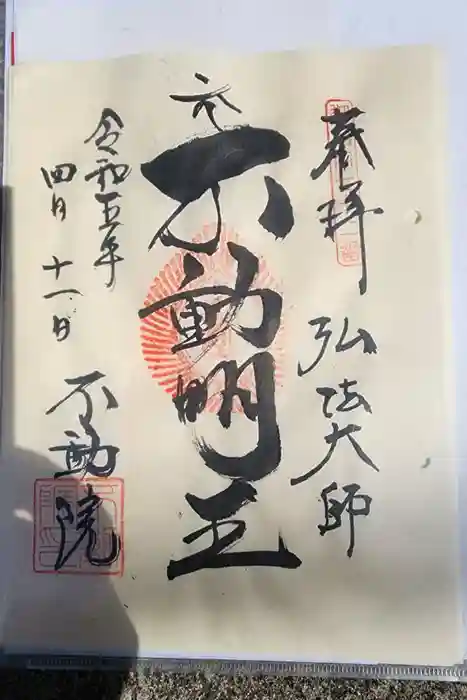 奉拝 弘法大師
不動明王
令和五年
四月十一日 不動院